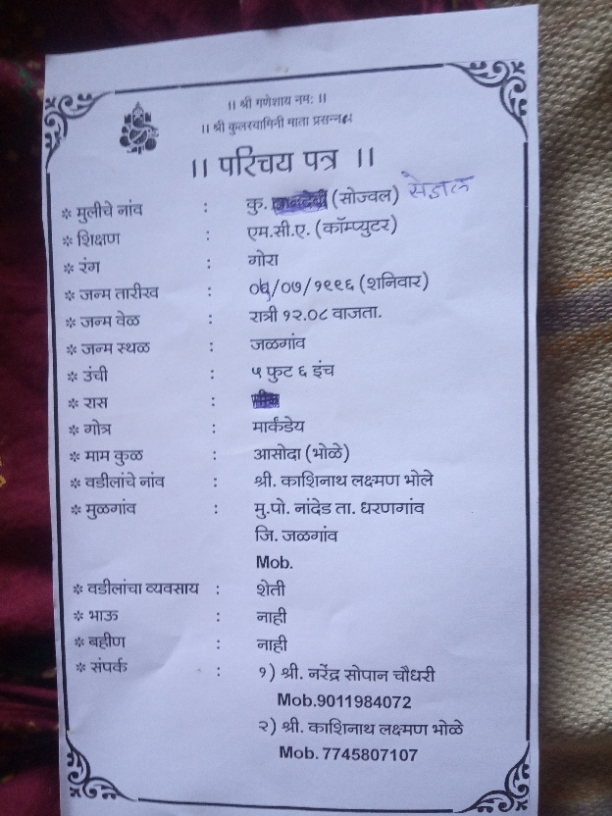 ।। श्री गणेशाय नम: ।।
।। श्री कुलस्वामिनी माता प्रसन्न ।।
।। परिचय पत्र ।।
* मुलीचे नांव : कु. (सोज्वल)
* शिक्षण : एम.सी.ए. (कॉम्प्युटर)
* रंग : गोरा
* जन्म तारीख : /०७/१९९६ (शनिवार)
* जन्म वेळ : रात्री १२.०८ वाजता.
* जन्म स्थळ : जळगांव
* उंची : ५ फुट ६ इंच
* रास :
* गोत्र : मार्कंडेय
* माम कुळ : आसोदा (भोळे)
* वडीलांचे नांव : श्री. काशिनाथ लक्ष्मण भोले
* मुळगांव : मु.पो. नांदेड ता. धरणगांव
जि. जळगांव
Mob.
* वडीलांचा व्यवसाय : शेती
* भाऊ : नाही
* बहीण : नाही
* संपर्क : १) श्री. नरेंद्र सोपान चौधरी
Mob.9011984072
२) श्री. काशिनाथ लक्ष्मण भोळे
Mob. 7745807107